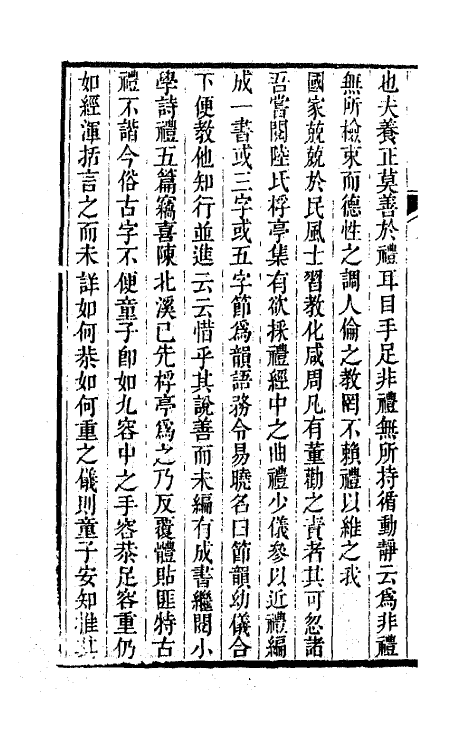 也夫養正莫善於禮耳目手足非禮無所持循動靜云爲非禮
無所檢束而德性之調人倫之教罔不賴禮以維之我
國家兢兢於民風士習教化咸周凡有董勸之責者其可忽諸
吾嘗閱陸氏桴亭集有欲採禮經中之曲禮少儀參以近禮編
成一書或三字或五字節爲韻語務令易曉名曰節韻幼儀合
下便教他知行並進云云惜乎其說善而未編有成書繼閱小
學詩禮五篇竊喜陳北溪已先桴亭爲之乃反覆體貼匪特古
禮不諧今俗古字不便童子卽如九容中之手容恭足容重仍
如經渾括言之而未詳如何恭如何重之儀則童子安知惟其